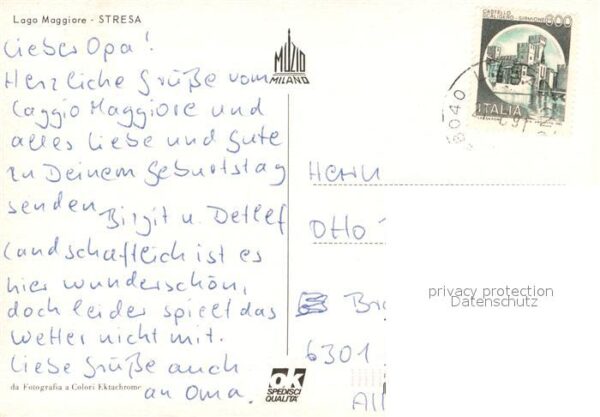 Lago Maggiore - STRESA
Lieber Opa!
Herzliche Grüße vom
Laggio Maggiore und
alles Liebe und Gute
zu Deinem Geburtstag
senden Birgit u. Detlef
Landschaftlich ist es
hier wunderschön,
doch leider spielt das
Wetter nicht mit.
Liebe Grüße auch
an Oma.
da Fotografia a Colori Ektachrome
MUZIO
MILANO
OK
SPEDISCI
QUALITA'
CASTELLO
SCALIGERO - SIRMIONE
600
ITALIA
8040
Herrn
Otto
Br
6301
All
privacy protection
Datenschutz